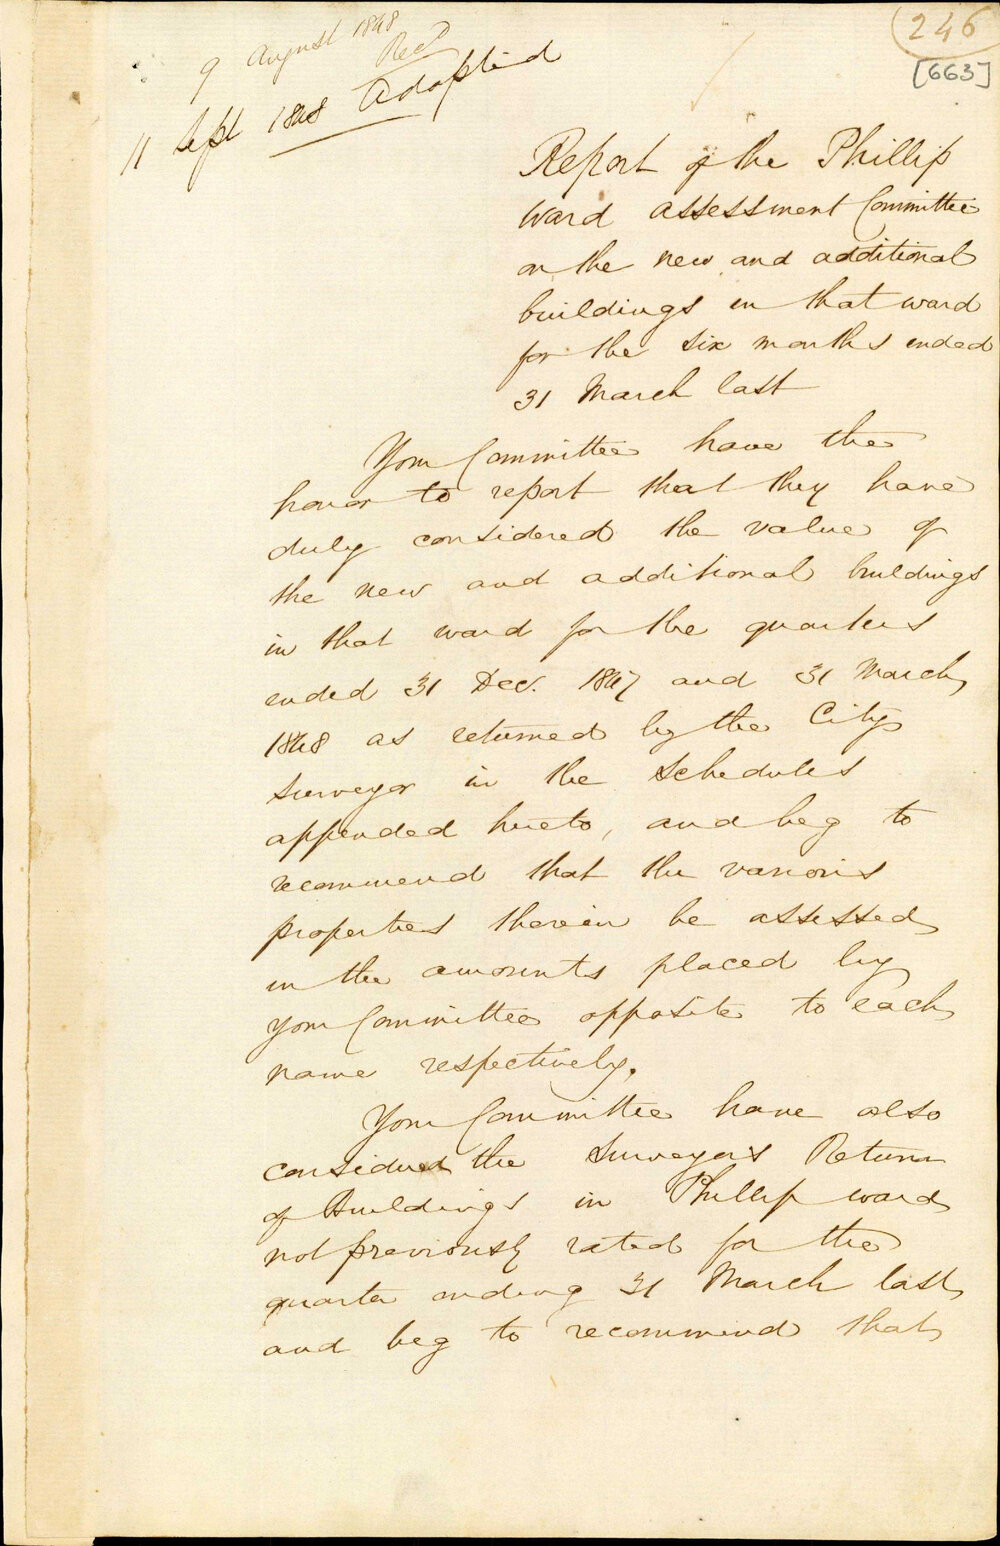 246
[663]
9 August 1848
Recd
11 Sept 1848 Adopted
Report of the Phillip
Ward Assessment Committee
on the new and additional
buildings in that ward
for the six months ended
31 March last
Your Committee have the
honor to report that they have
duly considered the value of
the new and additional buildings
in that ward for the quarters
ended 31 Dec. 1847 and 31 March,
1848 as returned by the City
Surveyor in the Schedules
appended hereto, and beg to
recommend that the various
properties therein be assessed
in the amounts placed by
your Committee opposite to each
name respectively.
Your Committee have also
considered the Surveyor's Return
of Buildings in Phillip ward
not previously rated for the
quarter ending 31 March last,
and beg to recommend that